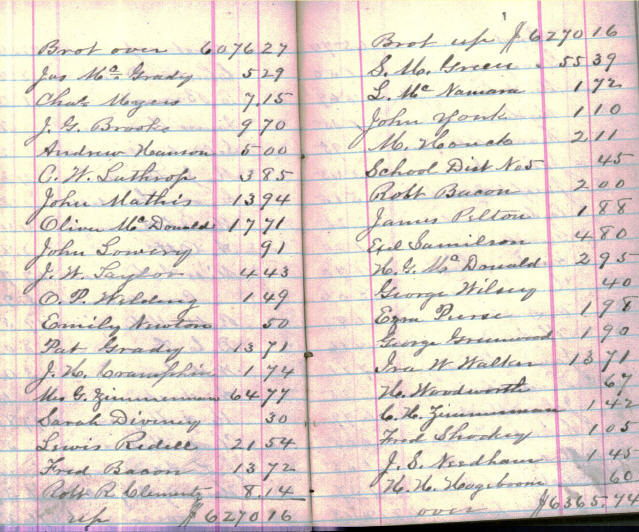 Brot over 6076.27
Jas Mc Grady 5 29
Chas Moyers 7.15
J. G. Brooks 9 70
Andrew Hanson 5 00
C. W. Luthrop 3 85
John Mathis 13 94
Oliver Mc Donald 17 71
John Lowery 91
J. W. Taylor 4 43
O. P. Welding 1 49
Emily Newton 50
Pat Grady 13 71
J. H. Cramphin 1 74
Mrs G. Zimmerman 64 77
Sarah Diviney 30
Lewis Redell 21 54
Fred Bacon 13 72
Robt R. Clementz 8.14
up $ 6270 16
Brot up $ 6270 16
S. M. Green 55 39
L. Mc Namara 1 72
John York 1 10
M. Houck 2 11
School Dist No 5 45
Robt Bacon 2 00
James Pelton 1 88
End Samilson 4 80
H. G. Mc Donald 2 95
George Wilsey 40
Ezra Pierse 1 98
George Greenwood 1 90
Ira W Walker 13 71
H. Woodworth 67
C. H. Zimmerman 1 42
Fred Shockey 1 05
J. S. Needham 1 45
H. H. Hageboom 60
over $ 6365.74